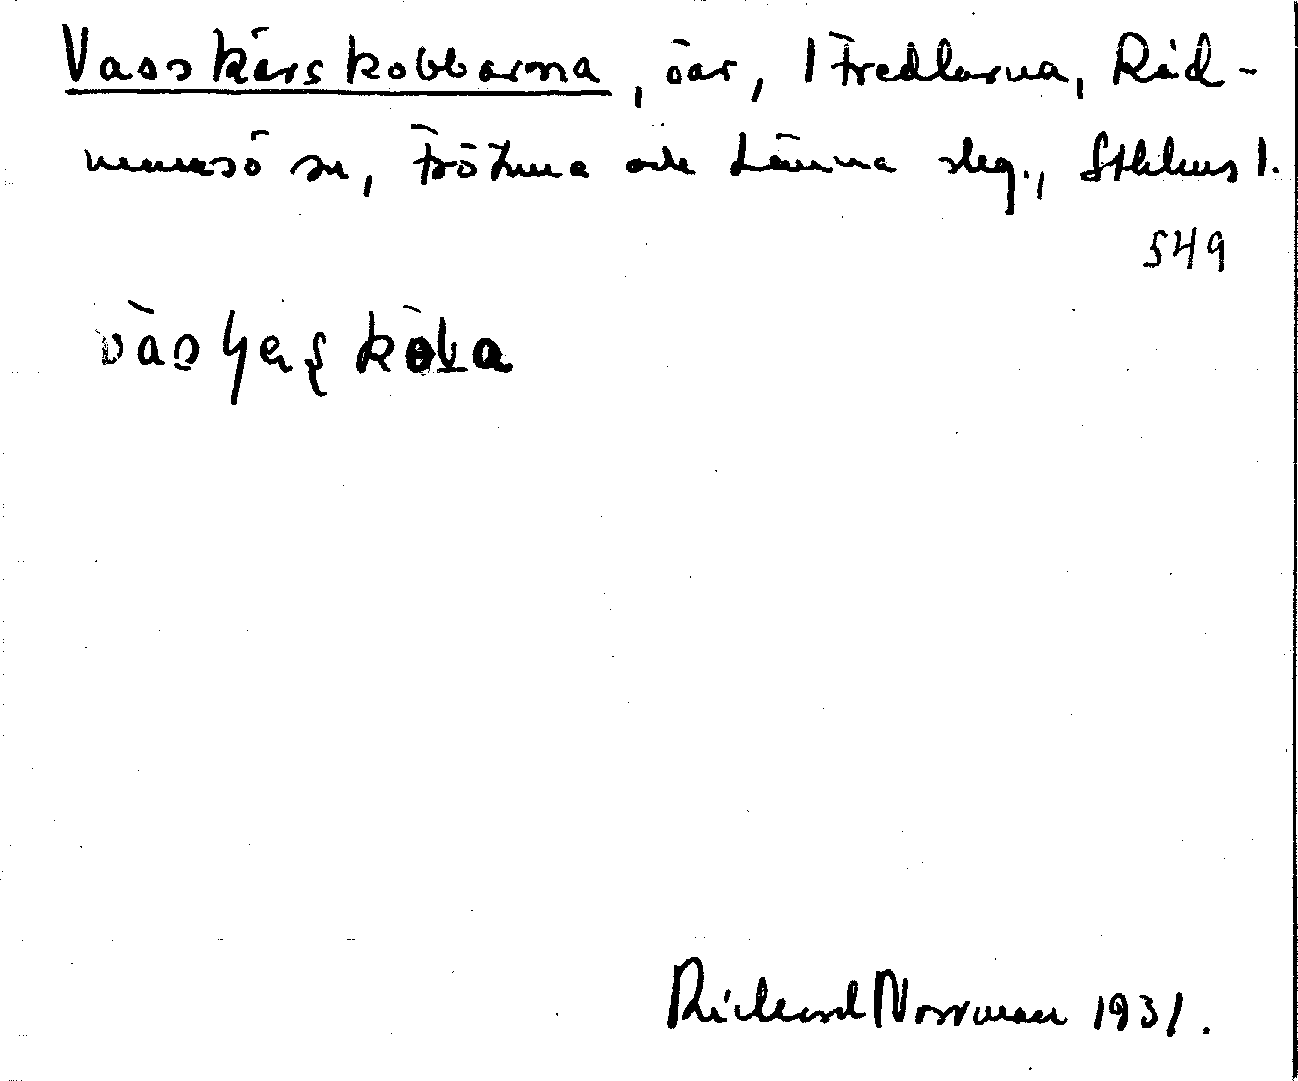 Vasskärskobbarna, öar, Fredlarna, Råd-
mansö sn, Frötuna och Länna skg., Sthlms l.
549
Richard Norrman 1931.